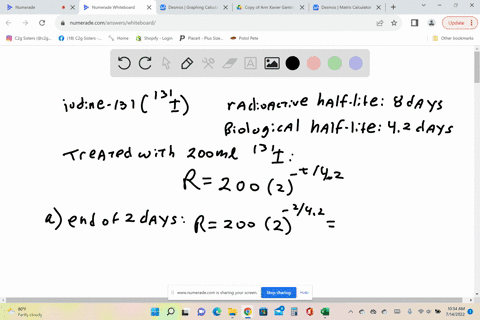 Numerade
Numerade Whiteboard
Desmos | Graphing Calculato
Copy of Ann Xavier Gantert
Desmos | Matrix Calculator
numerade.com/answers/whiteboard/
Update
C2g Sisters (@c2g...
(18) C2g Sisters -...
Home
Shopify - Login
Placeit - Plus Size...
Pistol Pete
Other bookmarks
iodine-131 (¹³¹I)
radioactive half-life: 8 days
Biological half-life: 4.2 days
Treated with 200ml ¹³¹I:
R = 200 (2)^-t/4.2
a) end of 2 days: R = 200 (2)^-2/4.2 =
www.numerade.com is sharing your screen.
Stop sharing
Hide
80°F
Partly cloudy
10:54 AM
7/14/2022